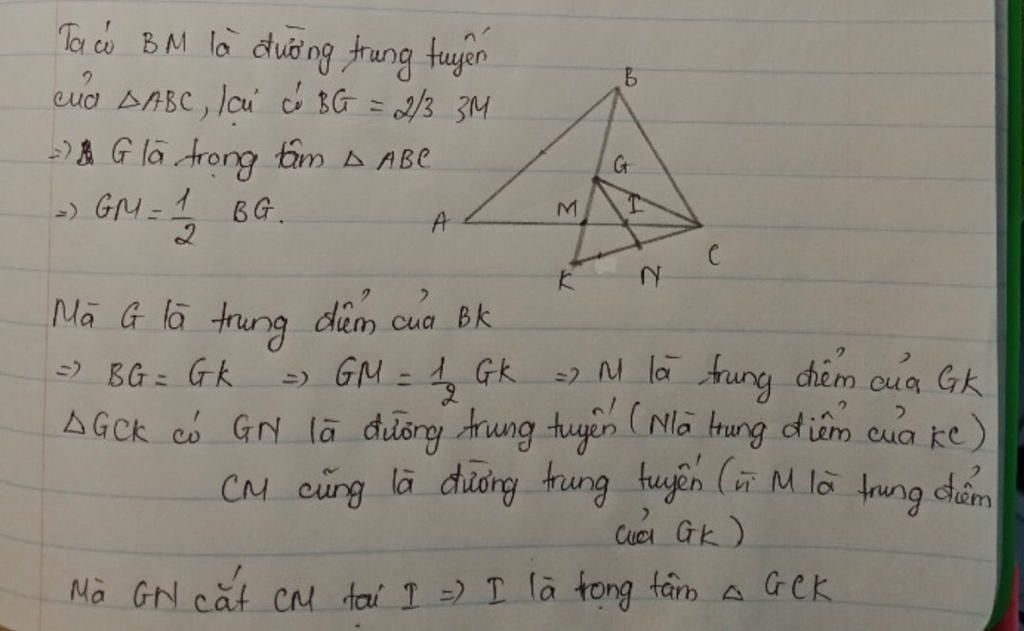 Ta có BM là đường trung tuyến
của △ABC, lại có BG = 2/3 BM
=> G là trọng tâm △ ABC
=> GM = 1/2 BG.
B
G
A
M
I
C
K
N
Mà G là trung điểm của BK
=> BG = GK => GM = 1/2 GK => M là trung điểm của GK
△GCK có GN là đường trung tuyến (N là trung điểm của KC)
CM cũng là đường trung tuyến (vì M là trung điểm
của GK)
Mà GN cắt CM tại I => I là trọng tâm △ GCK